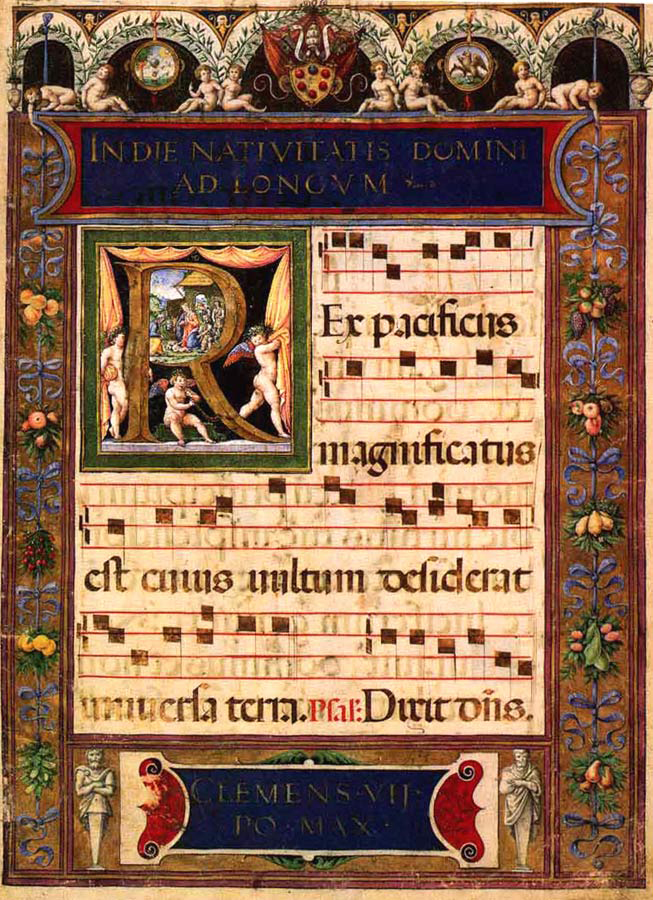 IN DIE NATIVITATIS DOMINI
AD LONGVM
REx pacificus
magnificatus
est cuius uultum desiderat
uniuersa terra. Psal: Dixit dñs.
CLEMENS·VIJ·
PO·MAX·